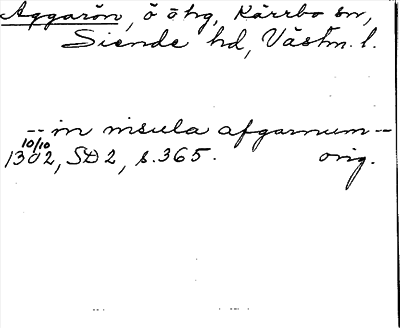 Aggarön, ö ö hg, Kärrbo sn,
Siende hd, Västm. l.
-- in insula afgarnum --
10/10
1302, SD 2, s. 365. orig.